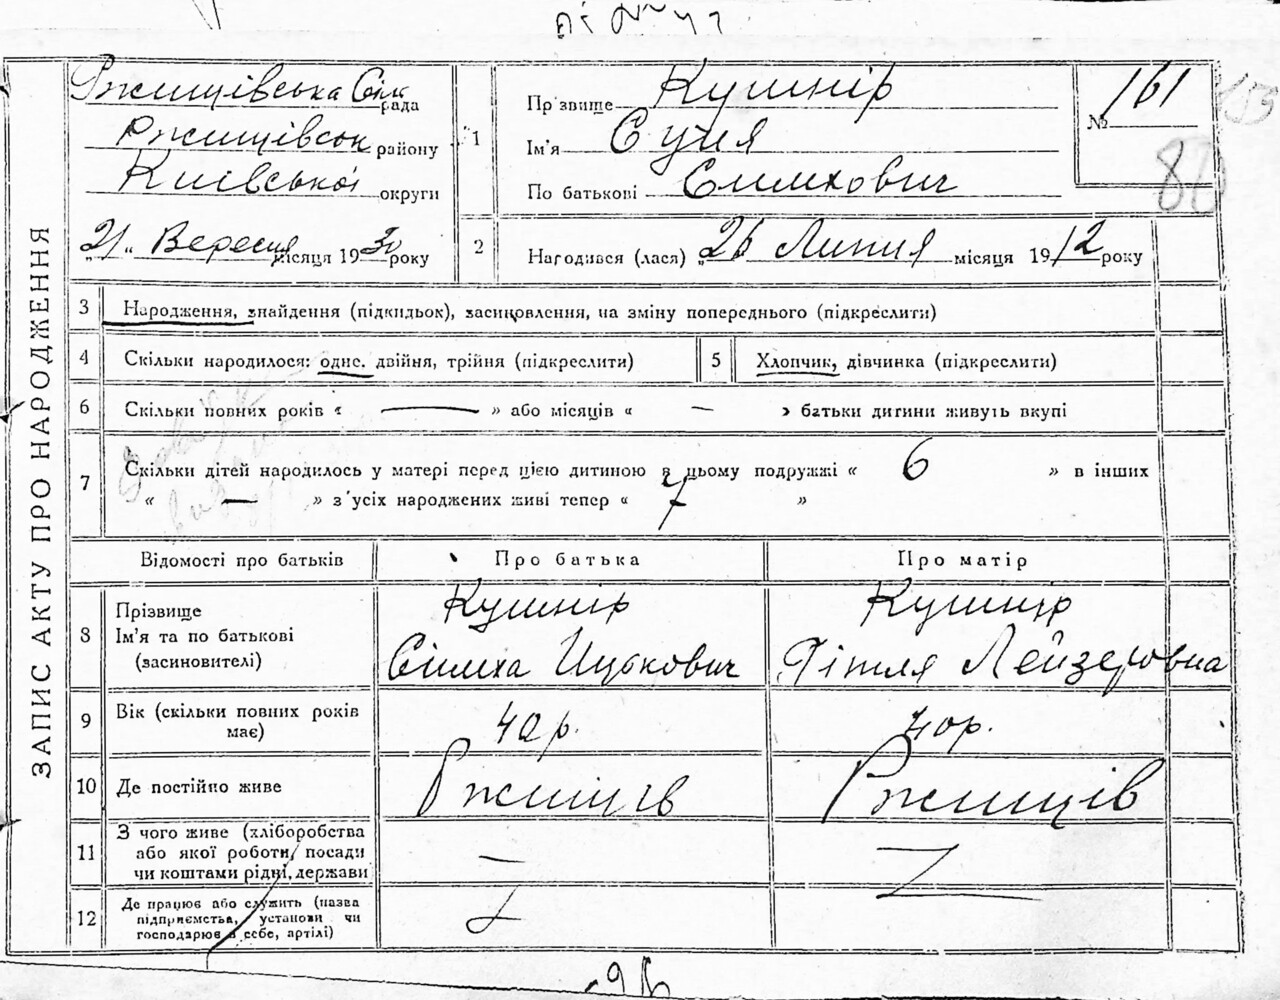 ЗАПИС АКТУ ПРО НАРОДЖЕННЯ
Ржищівська Сел. рада
Ржищівськ району
Київської округи
„21“ Вересня місяця 1930 року
1
Пр'звище Кушнір
Ім'я
По батькові Симхович
№ 161
80
2
Народився (лася) „26 Липня місяця 1912 року
3 Народження, знайдення (підкидьок), засиновлення, на зміну попереднього (підкреслити)
4 Скільки народилося: одне, двійня, трійня (підкреслити)
5 Хлопчик, дівчинка (підкреслити)
6 Скільки повних років « — » або місяців « — » батьки дитини живуть вкупі
7 Скільки дітей народилось у матері перед цією дитиною в цьому подружжі « 6 » в інших
« — » з'усіх народжених живі тепер « 7 »
Відомості про батьків Про батька Про матір
8 Прізвище
Ім'я та по батькові
(засиновителі)
Кушнір
Сімха Ицькович
Кушнір
Гітля Лейзеровна
9 Вік (скільки повних років
має)
42 р.
40 р.
10 Де постійно живе Ржищів Ржищів
11 З чого живе (хліборобства
або якої роботи, посади
чи коштами рідні, держави
—
12 Де працює або служить (назва
підприємства, установи чи
господарює в себе, артілі)